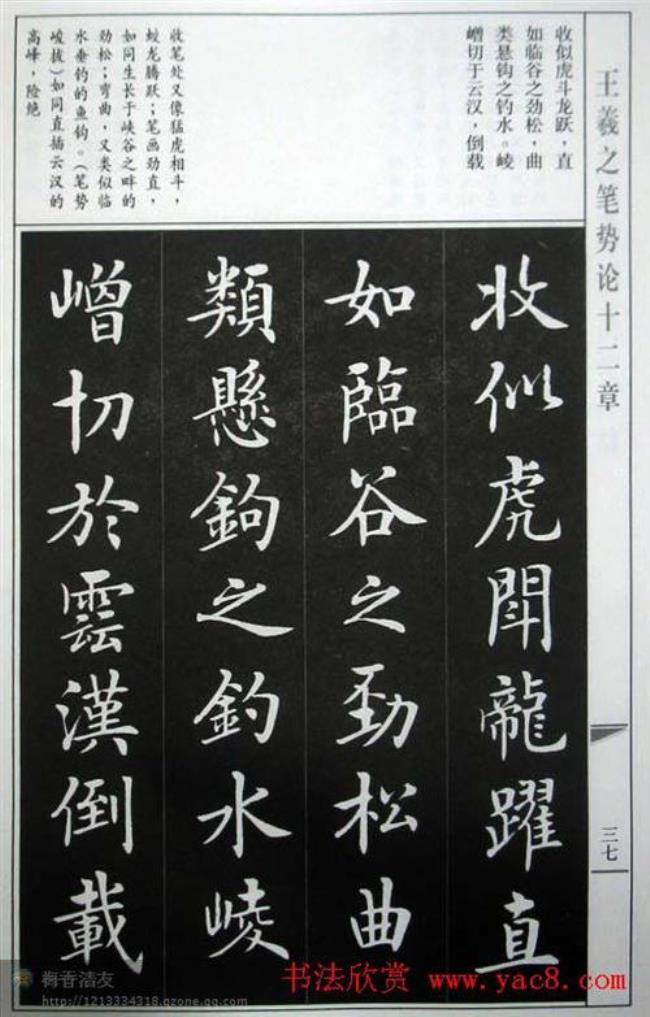 王羲之笔势论十二章
三七
收似虎斗龙跃，直
如临谷之劲松，曲
类悬钩之钓水。崚
嶒切于云汉，倒载
收笔处又像猛虎相斗，
蛟龙腾跃；笔画劲直，
如同生长于峡谷之畔的
劲松；弯曲，又类似临
水垂钓的鱼钩。（笔势
峻拔）如同直插云汉的
高峰，险绝
收似虎鬥龍躍直
如臨谷之勁松曲
類懸鉤之釣水崚
嶒切於雲漢倒載
梅香洁友
http://1213334318.qzone.qq.com
书法欣赏 www.yac8.com